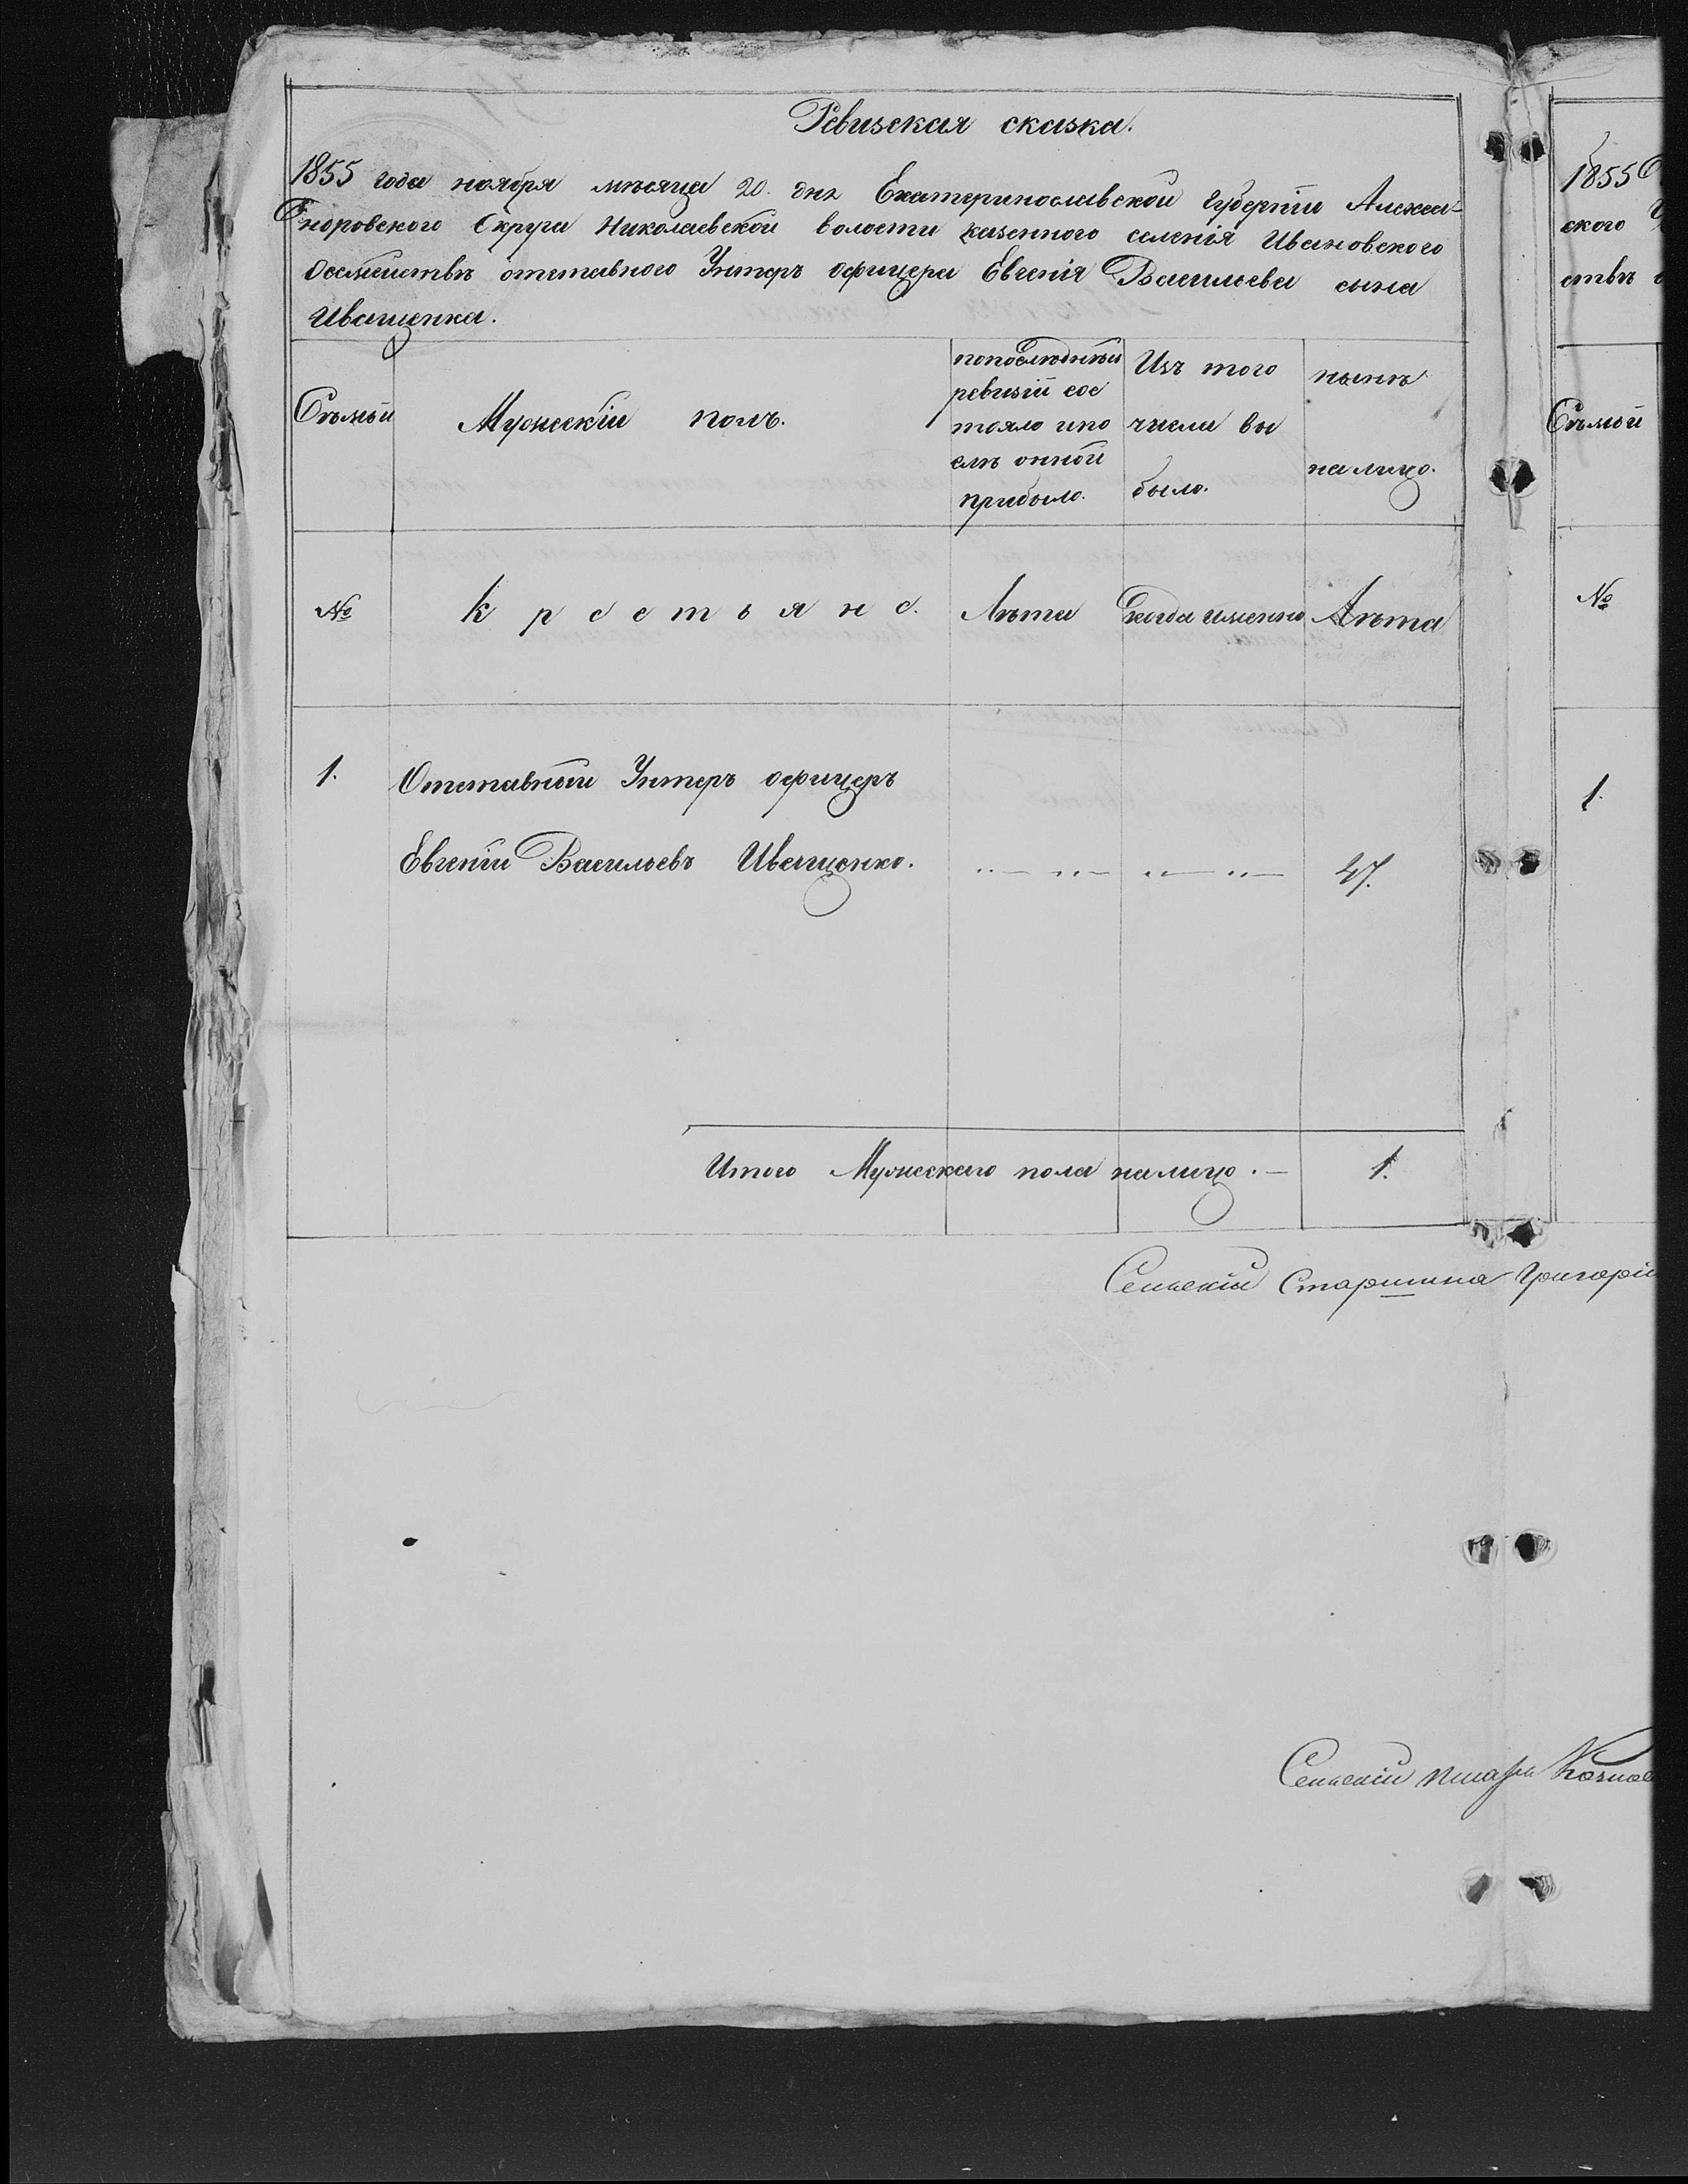 Ревизская сказка.
1855 года ноября мѣсяца 20. дня Екатеринославской Губерніи Алекса-
ндровского Округа Николаевской волости казенного селенія Ивановского
Осемействѣ отставного Унтеръ офицера Евгенія Васильева сына
Иващенка.
Сѣмьи
Мужескій полъ.
попослѣдней
ревизіи сос
тояло ипо
слѣ онной
прибыло.
Изъ того
числа вы
было.
нынѣ
налицо.
№
крестьяне.
Лѣта
когда именно
Лѣта
1.
Отставный Унтеръ офицеръ
Евгеній Васильевъ Иващенко.
47.
Итого Мужескаго пола налицо. —
1.
Сельскій Старшина Григорій
Сельскій писарь
1855
ского
ствѣ
Сѣмьи
№
1.